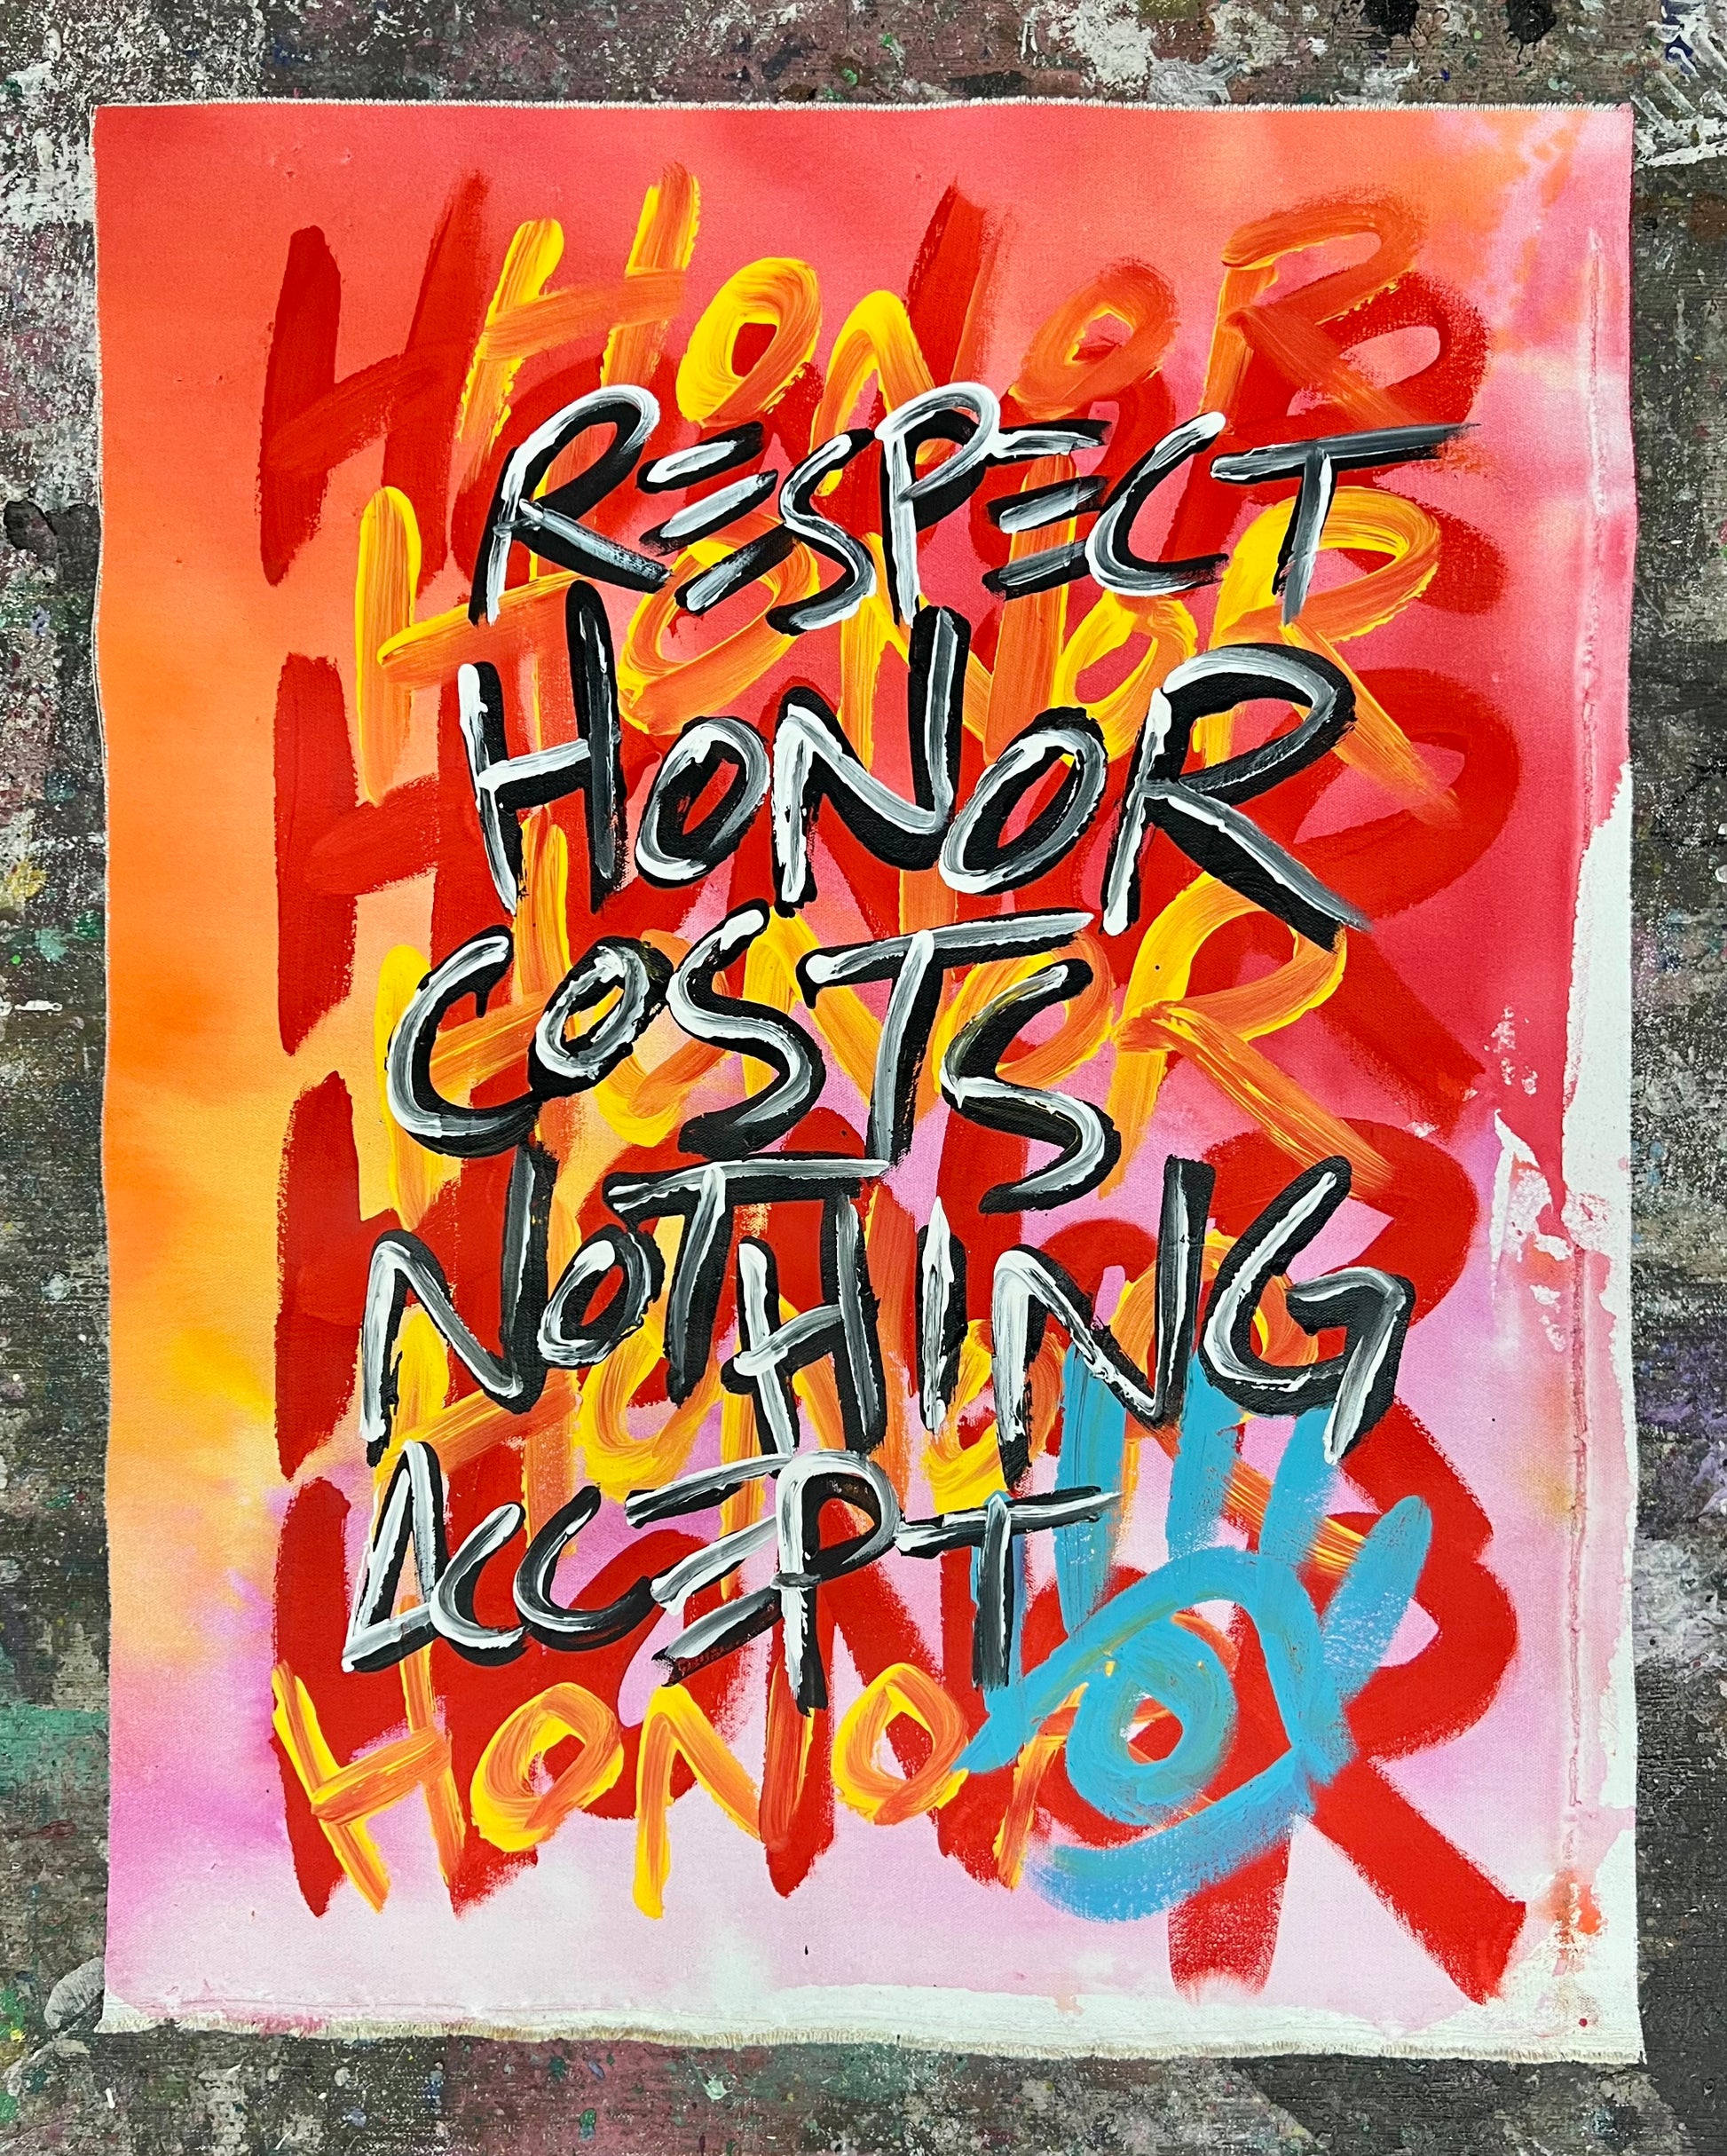 HONOR
RESPECT
HONOR
HONOR
COSTS
HONOR
NOTHING
HONOR
ACCEPT
HONOR